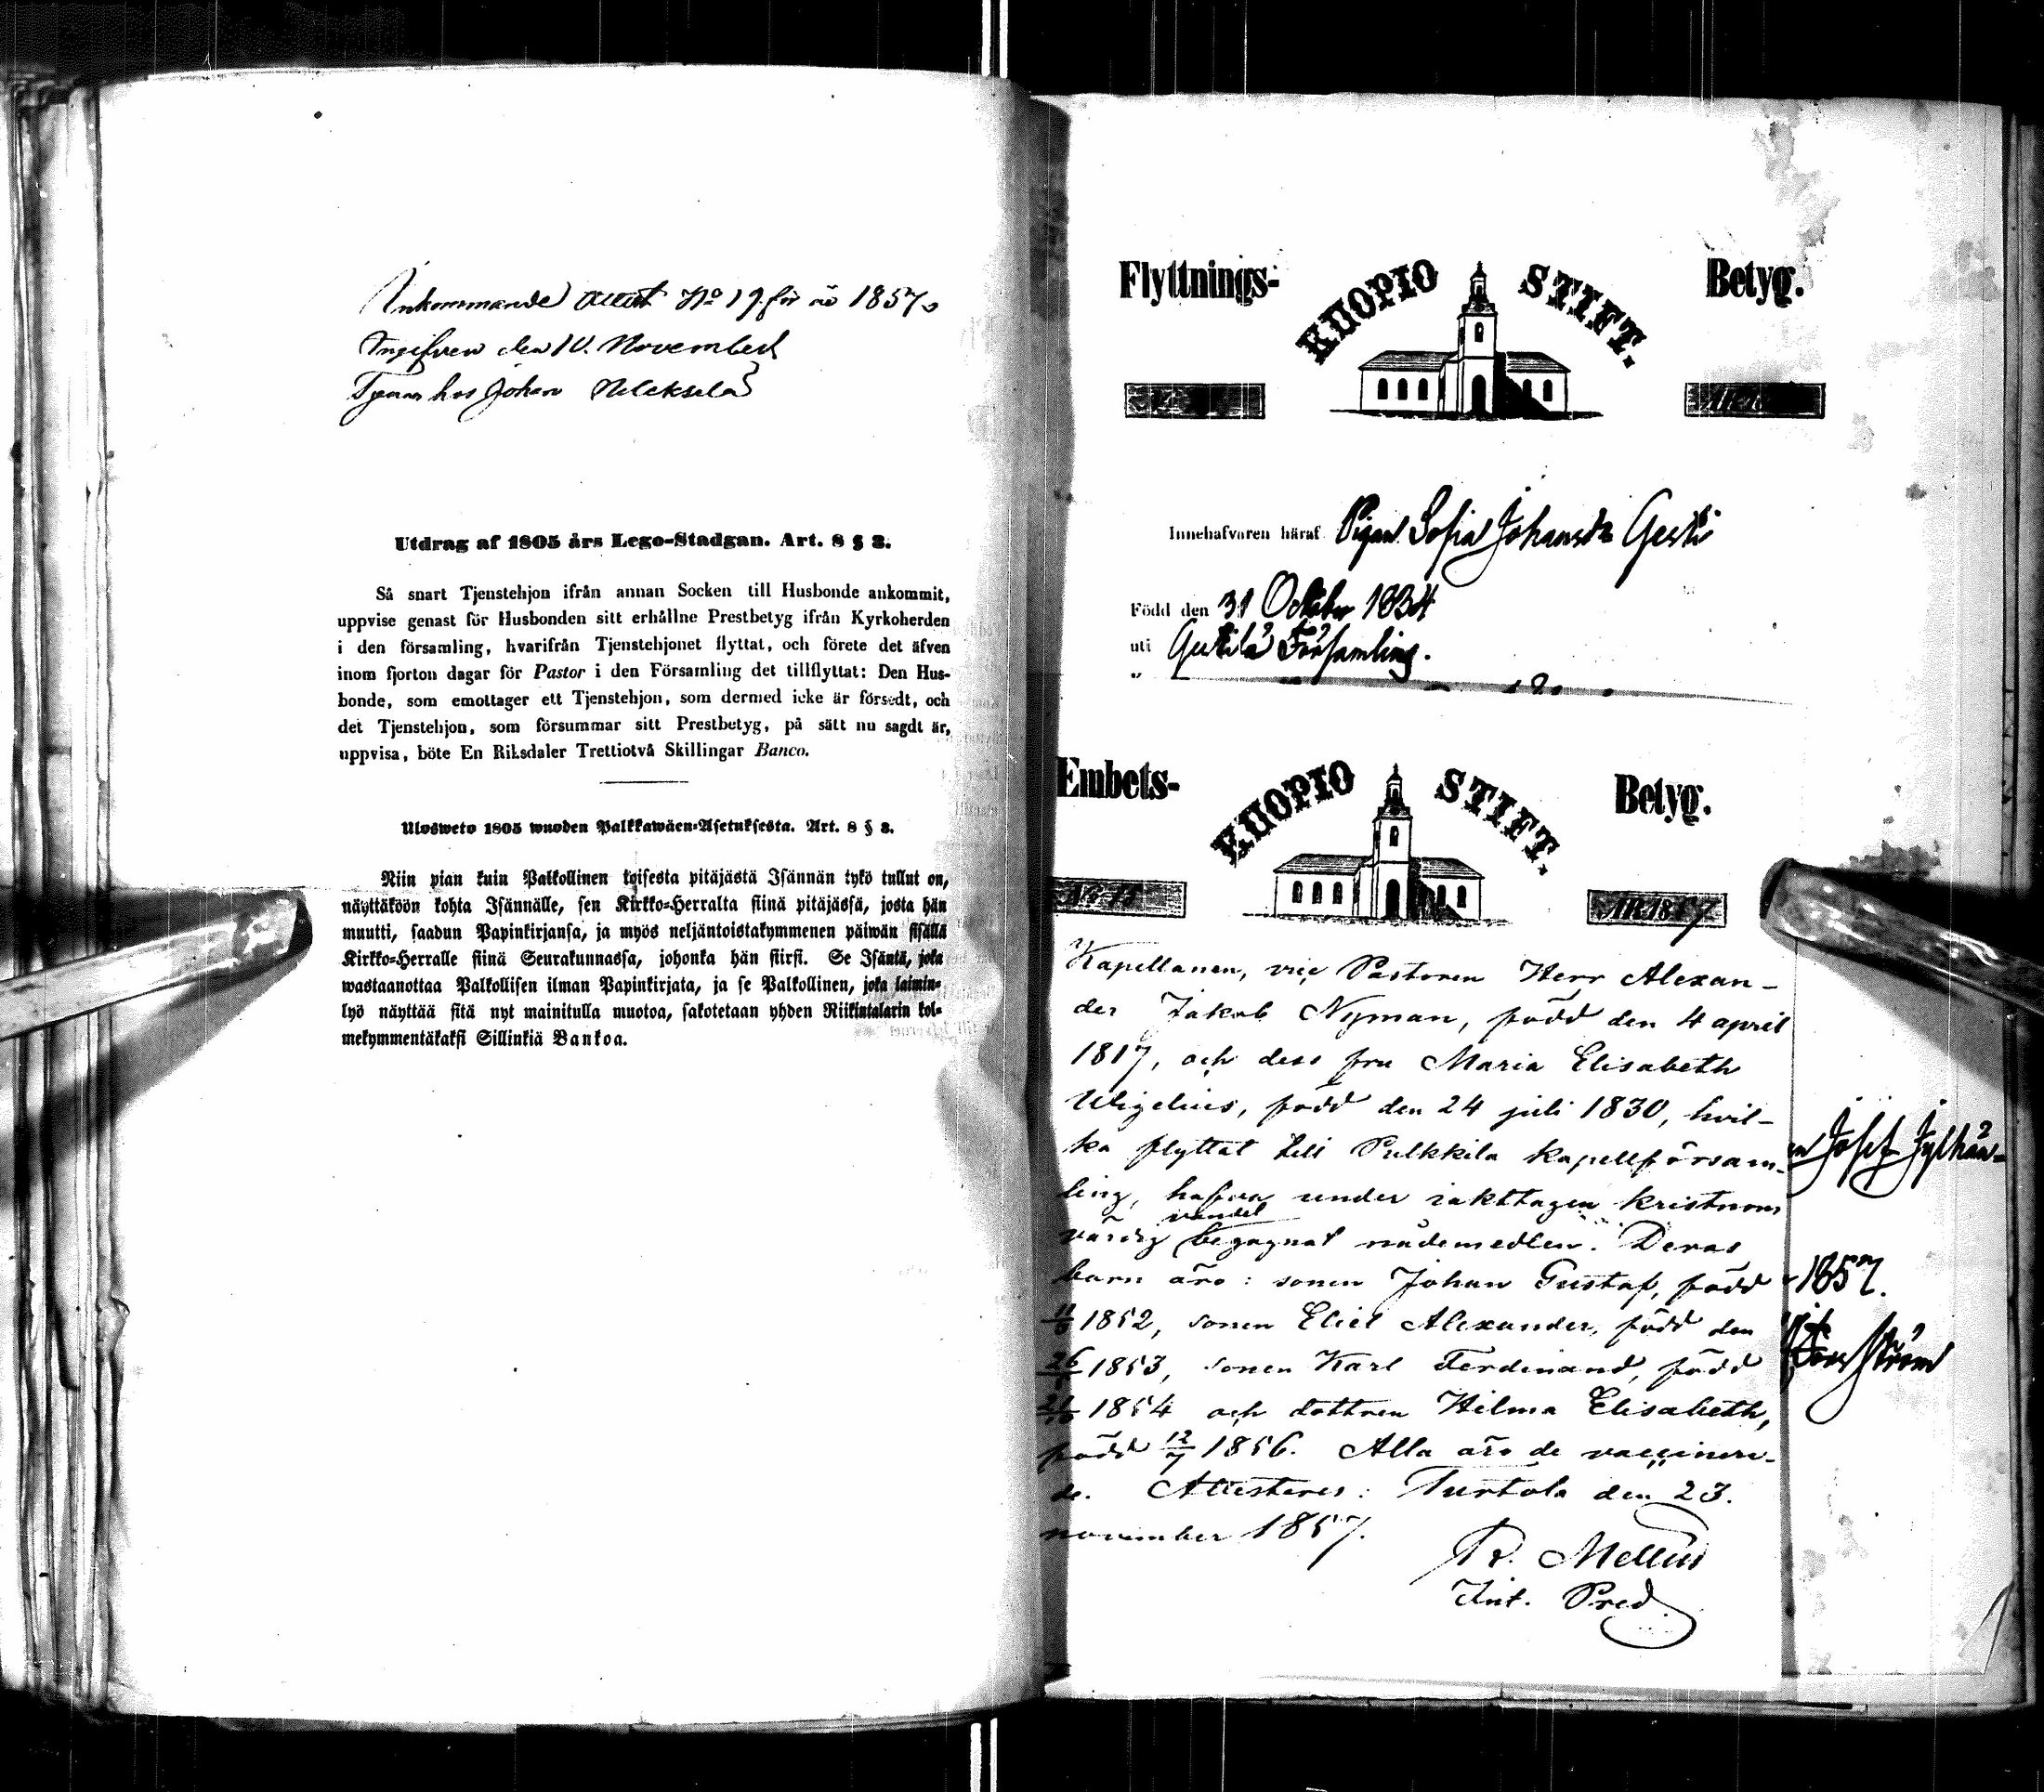 Inkommande attest No 19 för år 1857.
Ingifven den 10. November
Tjenar hos Johan
Utdrag af 1805 års Lego-Stadgan. Art. 8 § 3.
Så snart Tjenstehjon ifrån annan Socken till Husbonde ankommit,
uppvise genast för Husbonden sitt erhållne Prestbetyg ifrån Kyrkoherden
i den församling, hvarifrån Tjenstehjonet flyttat, och förete det äfven
inom fjorton dagar för Pastor i den Församling det tillflyttat: Den Hus-
bonde, som emottager ett Tjenstehjon, som dermed icke är försedt, och
det Tjenstehjon, som försummar sitt Prestbetyg, på sätt nu sagdt är,
uppvisa, böte En Riksdaler Trettiotvå Skillingar Banco.
Ulosweto 1805 wuoden Palkkawäen-Asetuksesta. Art. 8 § 3.
Niin pian kuin Palkollinen toisesta pitäjästä Isännän tykö tullut on,
näyttäköön kohta Isännälle, sen Kirkko-Herralta siinä pitäjässä, josta hän
muutti, saadun Papinkirjansa, ja myös neljäntoistakymmenen päiwän sisällä
Kirkko-Herralle siinä Seurakunnassa, johonka hän siirsi. Se Isäntä, joka
wastaanottaa Palkollisen ilman Papinkirjata, ja se Palkollinen, joka laimin-
lyö näyttää sitä nyt mainitulla muotoa, sakotetaan yhden Riikintalarin kol-
mekymmentäkaksi Sillinkiä Bankoa.
Flyttnings- KUOPIO STIFT. Betyg.
Innehafvaren häraf Pigan Sofia Johansdr
Född den 31 October 1834
uti Församling.
Embets- KUOPIO STIFT. Betyg.
Nr 18 ÅR 1857
Kapellanen, vice Pastoren Herr Alexan-
der Jakob Nyman, född den 4 april
1817, och dess fru Maria Elisabeth
Wigelius, född den 24 juli 1830, hvil-
ka flyttat till Pulkkila kapellförsam-
ling, hafva under iakttagen kristnom
värdig vandel begagnat nådemedlen. Deras
barn äro: sonen Johan Gustaf, född
1852, sonen Eliel Alexander, född den
1853, sonen Karl Ferdinand, född
1854 och dottren Hilma Elisabeth,
född 12/7 1856. Alla äro de vaccinera-
de. Attesteras: Turtola den 23.
november 1857.
R. Mellin
Int. Pred.
Josef Jylhän-
1857.